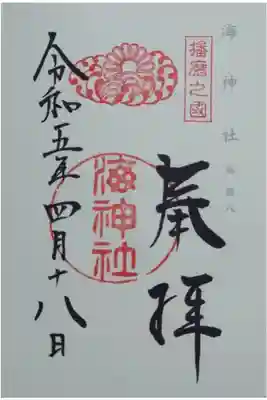 海神社
播磨之國
奉拝
海神社
令和五年四月十八日